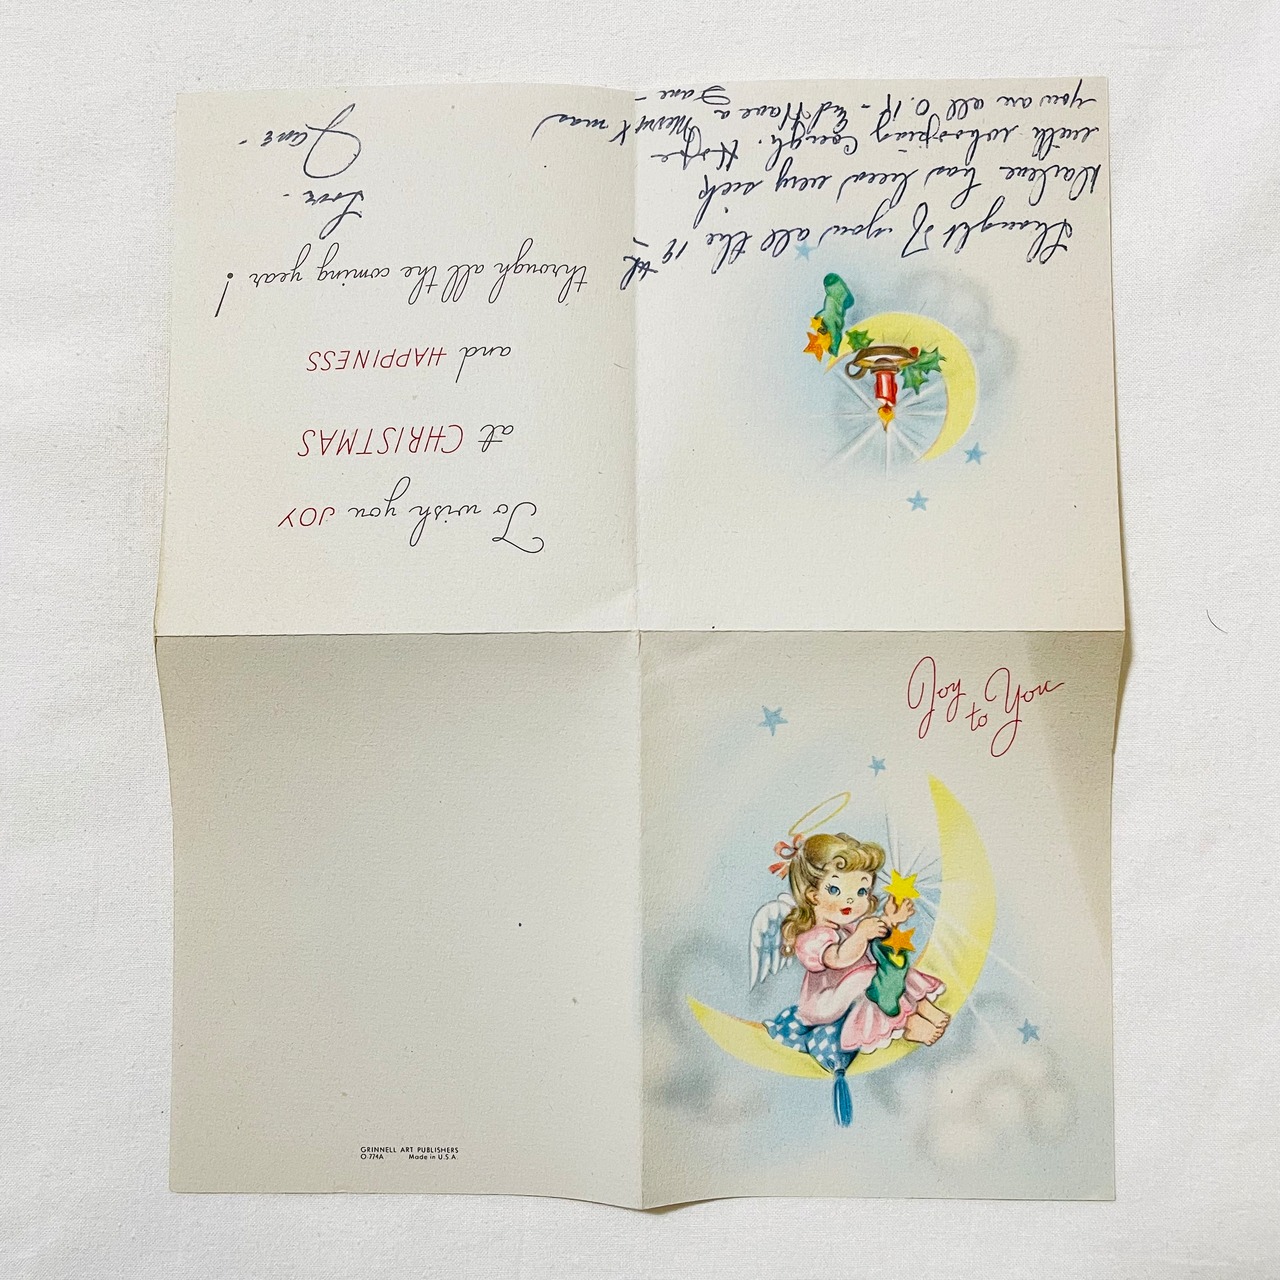 Joy
to You
GRINNELL ART PUBLISHERS
O-774A Made in U.S.A.
To wish you JOY
at CHRISTMAS
and HAPPINESS
through all the coming year!
Love -
Jane -
Thought of you all the
Darlene has been very sick
with whooping cough. Hope
you are all O.K - and Have a
Merry Xmas
Jane -